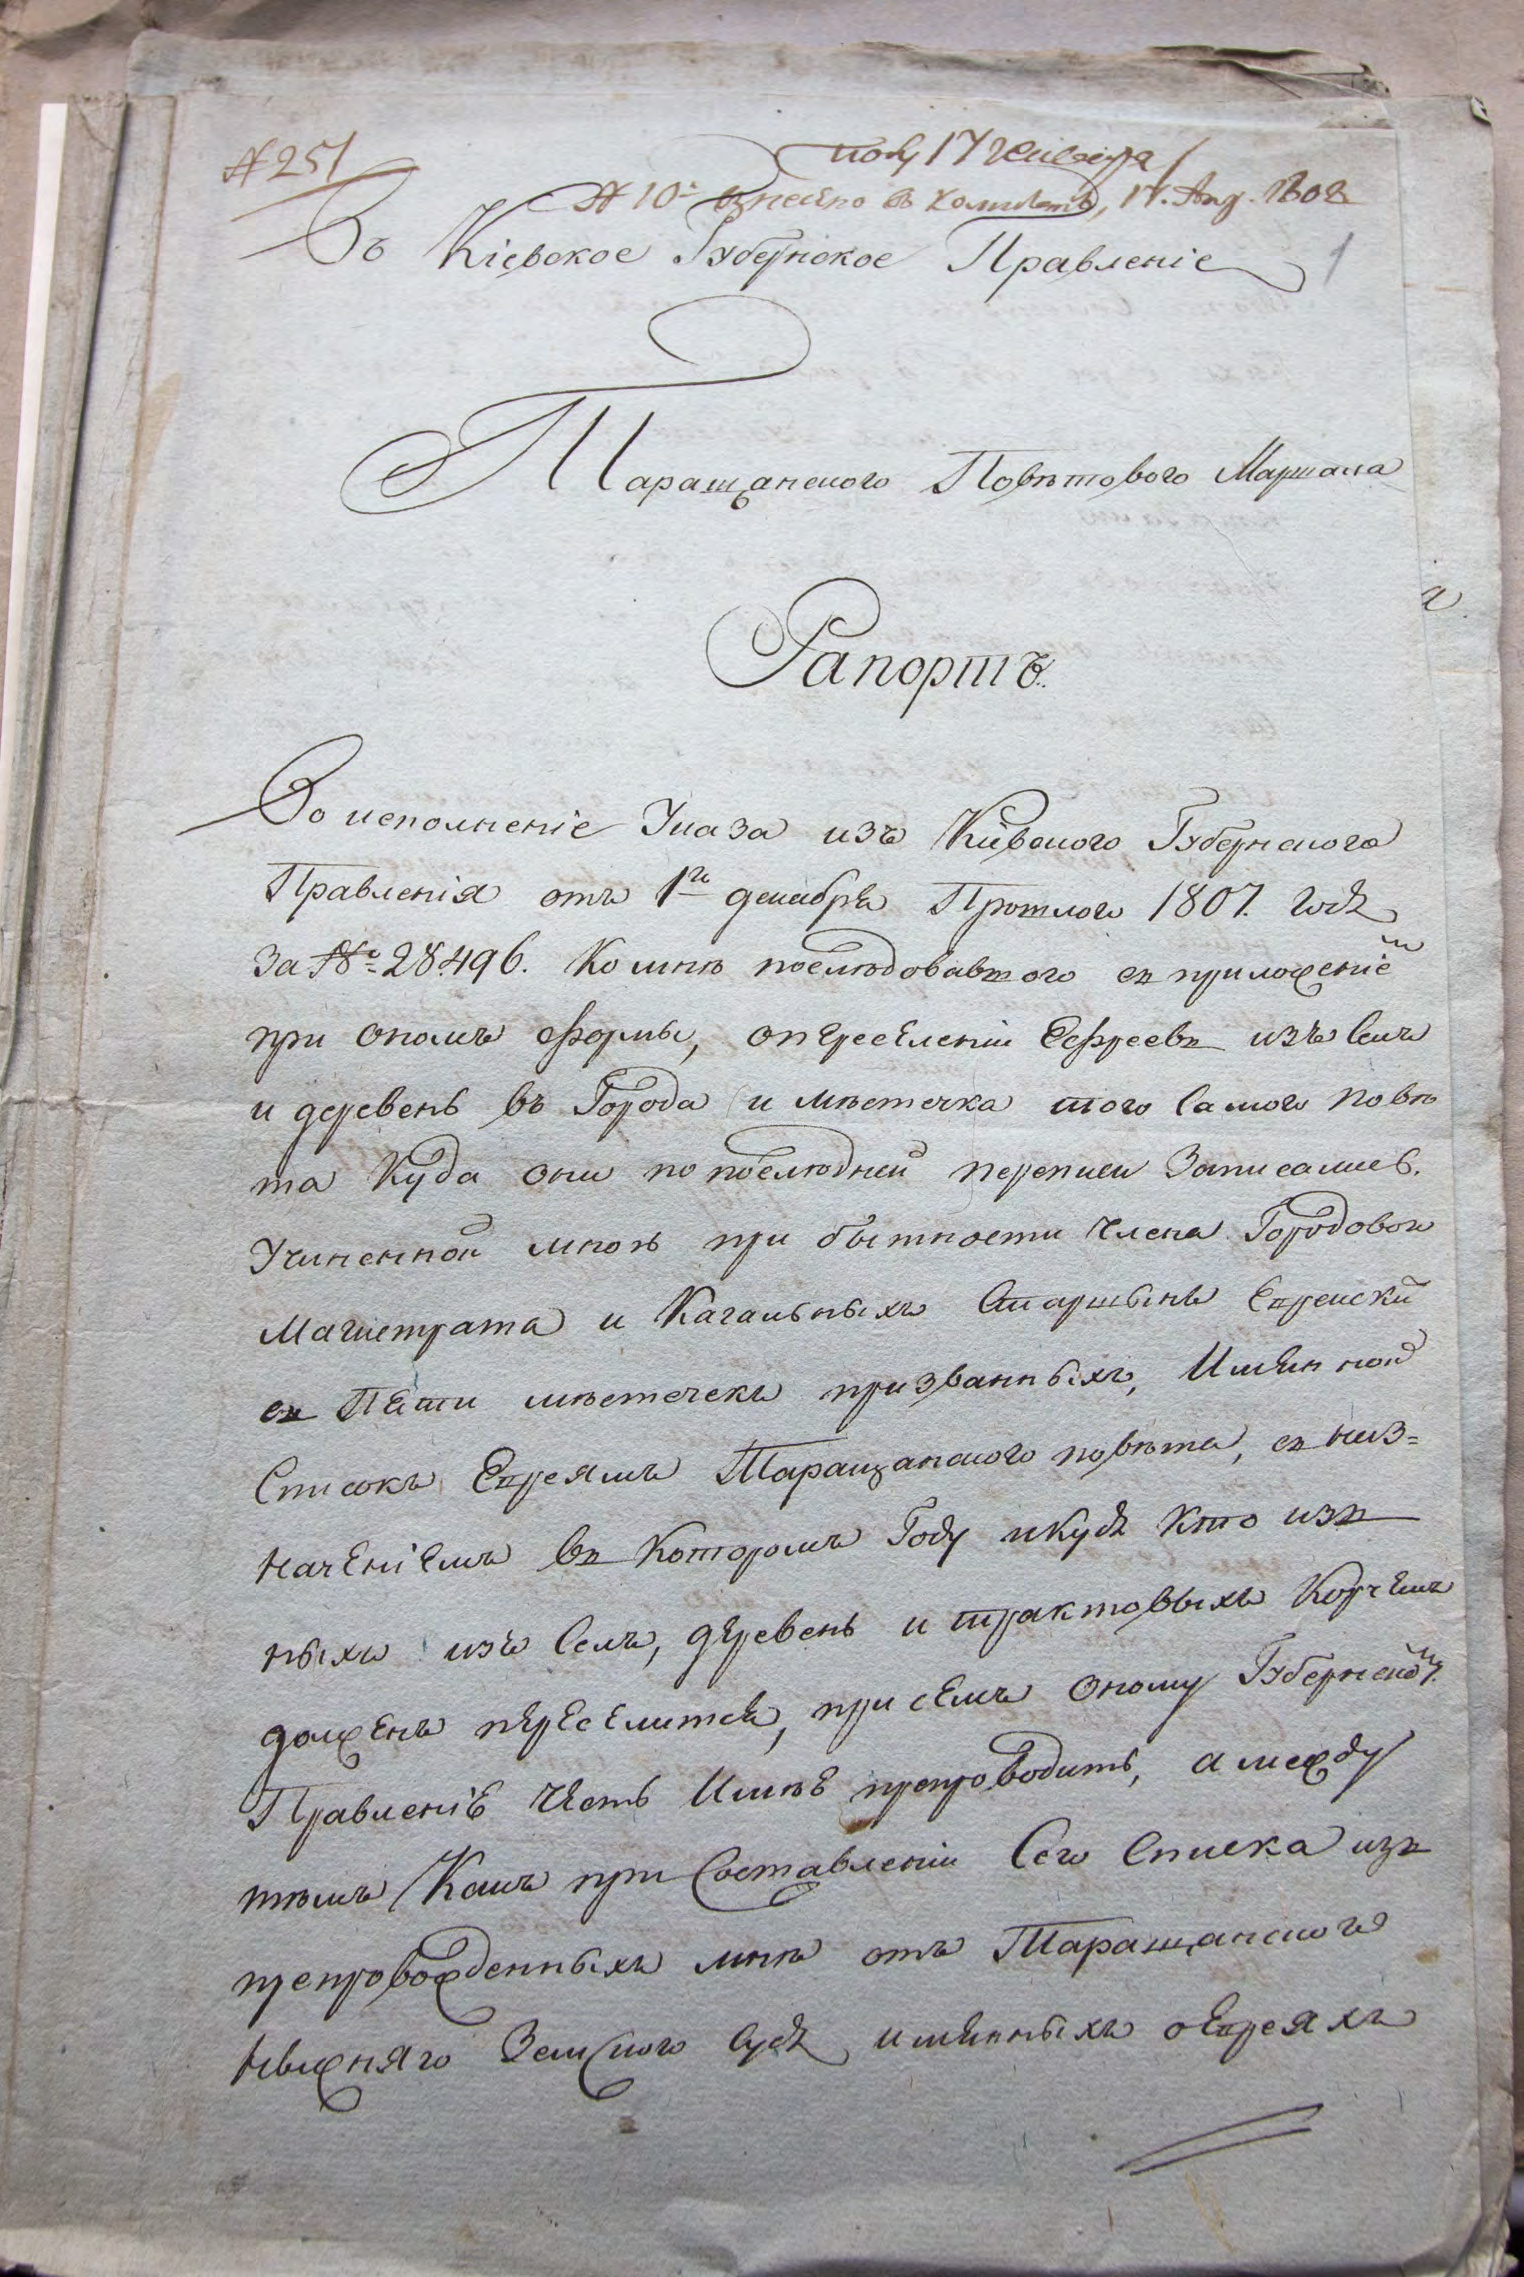 № 251
полу 17 генваря
№ 10. внесено в комитетъ, 17. Янв. 1808
1
Въ Кіевское Губернское Правленіе
Таращанского Повѣтового Маршала
Рапортъ.
Во исполненіе Указа изъ Кіевского Губернского
Правленія отъ 1го декабря Прошлого 1807. года
За № 28496. Ко мнѣ послѣдовавшого съ приложеніемъ
при ономъ формы, о переселеніи Евреевъ изъ Селъ
и деревень въ Города и мѣстечка того Самого повѣ
та Куда они по послѣдней переписи Записались.
Учиненной мною при бытности Члена Городовой
Магистрата и Кагальныхъ Старшынъ Еврейски
съ Пяти мѣстечекъ призванныхъ, Имянной
Списокъ Евреямъ Таращанского повѣта, съ наз=
наченіемъ въ Которомъ Году и куда Кто изъ
ныхъ изъ Селъ, деревень и трактовыхъ Корчемъ
долженъ переселится, при семъ оному Губернскому
Правленію Честь Имѣю препроводить, а между
тѣмъ Какъ при Составленіи Сего Списка изъ
препровожденныхъ мнѣ отъ Таращанского
Нижняго Земского Суда имянныхъ о Евреяхъ